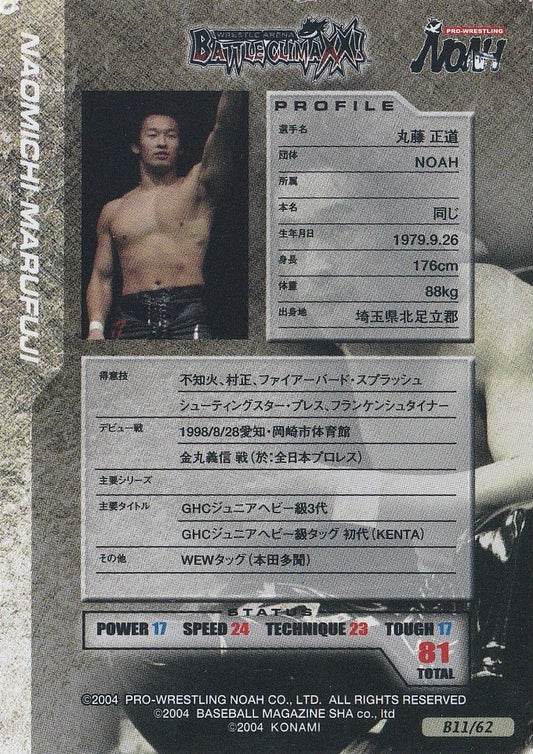 WRESTLE ARENA
BATTLE CLIMAXX!
PRO-WRESTLING
NOAH
NAOMICHI MARUFUJI
PROFILE
選手名 丸藤 正道
団体 NOAH
所属
本名 同じ
生年月日 1979.9.26
身長 176cm
体重 88kg
出身地 埼玉県北足立郡
得意技 不知火、村正、ファイアーバード・スプラッシュ
シューティングスター・プレス、フランケンシュタイナー
デビュー戦 1998/8/28愛知・岡崎市体育館
金丸義信 戦(於:全日本プロレス)
主要シリーズ
主要タイトル GHCジュニアヘビー級3代
GHCジュニアヘビー級タッグ 初代(KENTA)
その他 WEWタッグ(本田多聞)
STATUS
POWER 17 SPEED 24 TECHNIQUE 23 TOUGH 17
81
TOTAL
©2004 PRO-WRESTLING NOAH CO., LTD. ALL RIGHTS RESERVED
©2004 BASEBALL MAGAZINE SHA co., ltd
©2004 KONAMI
B11/62